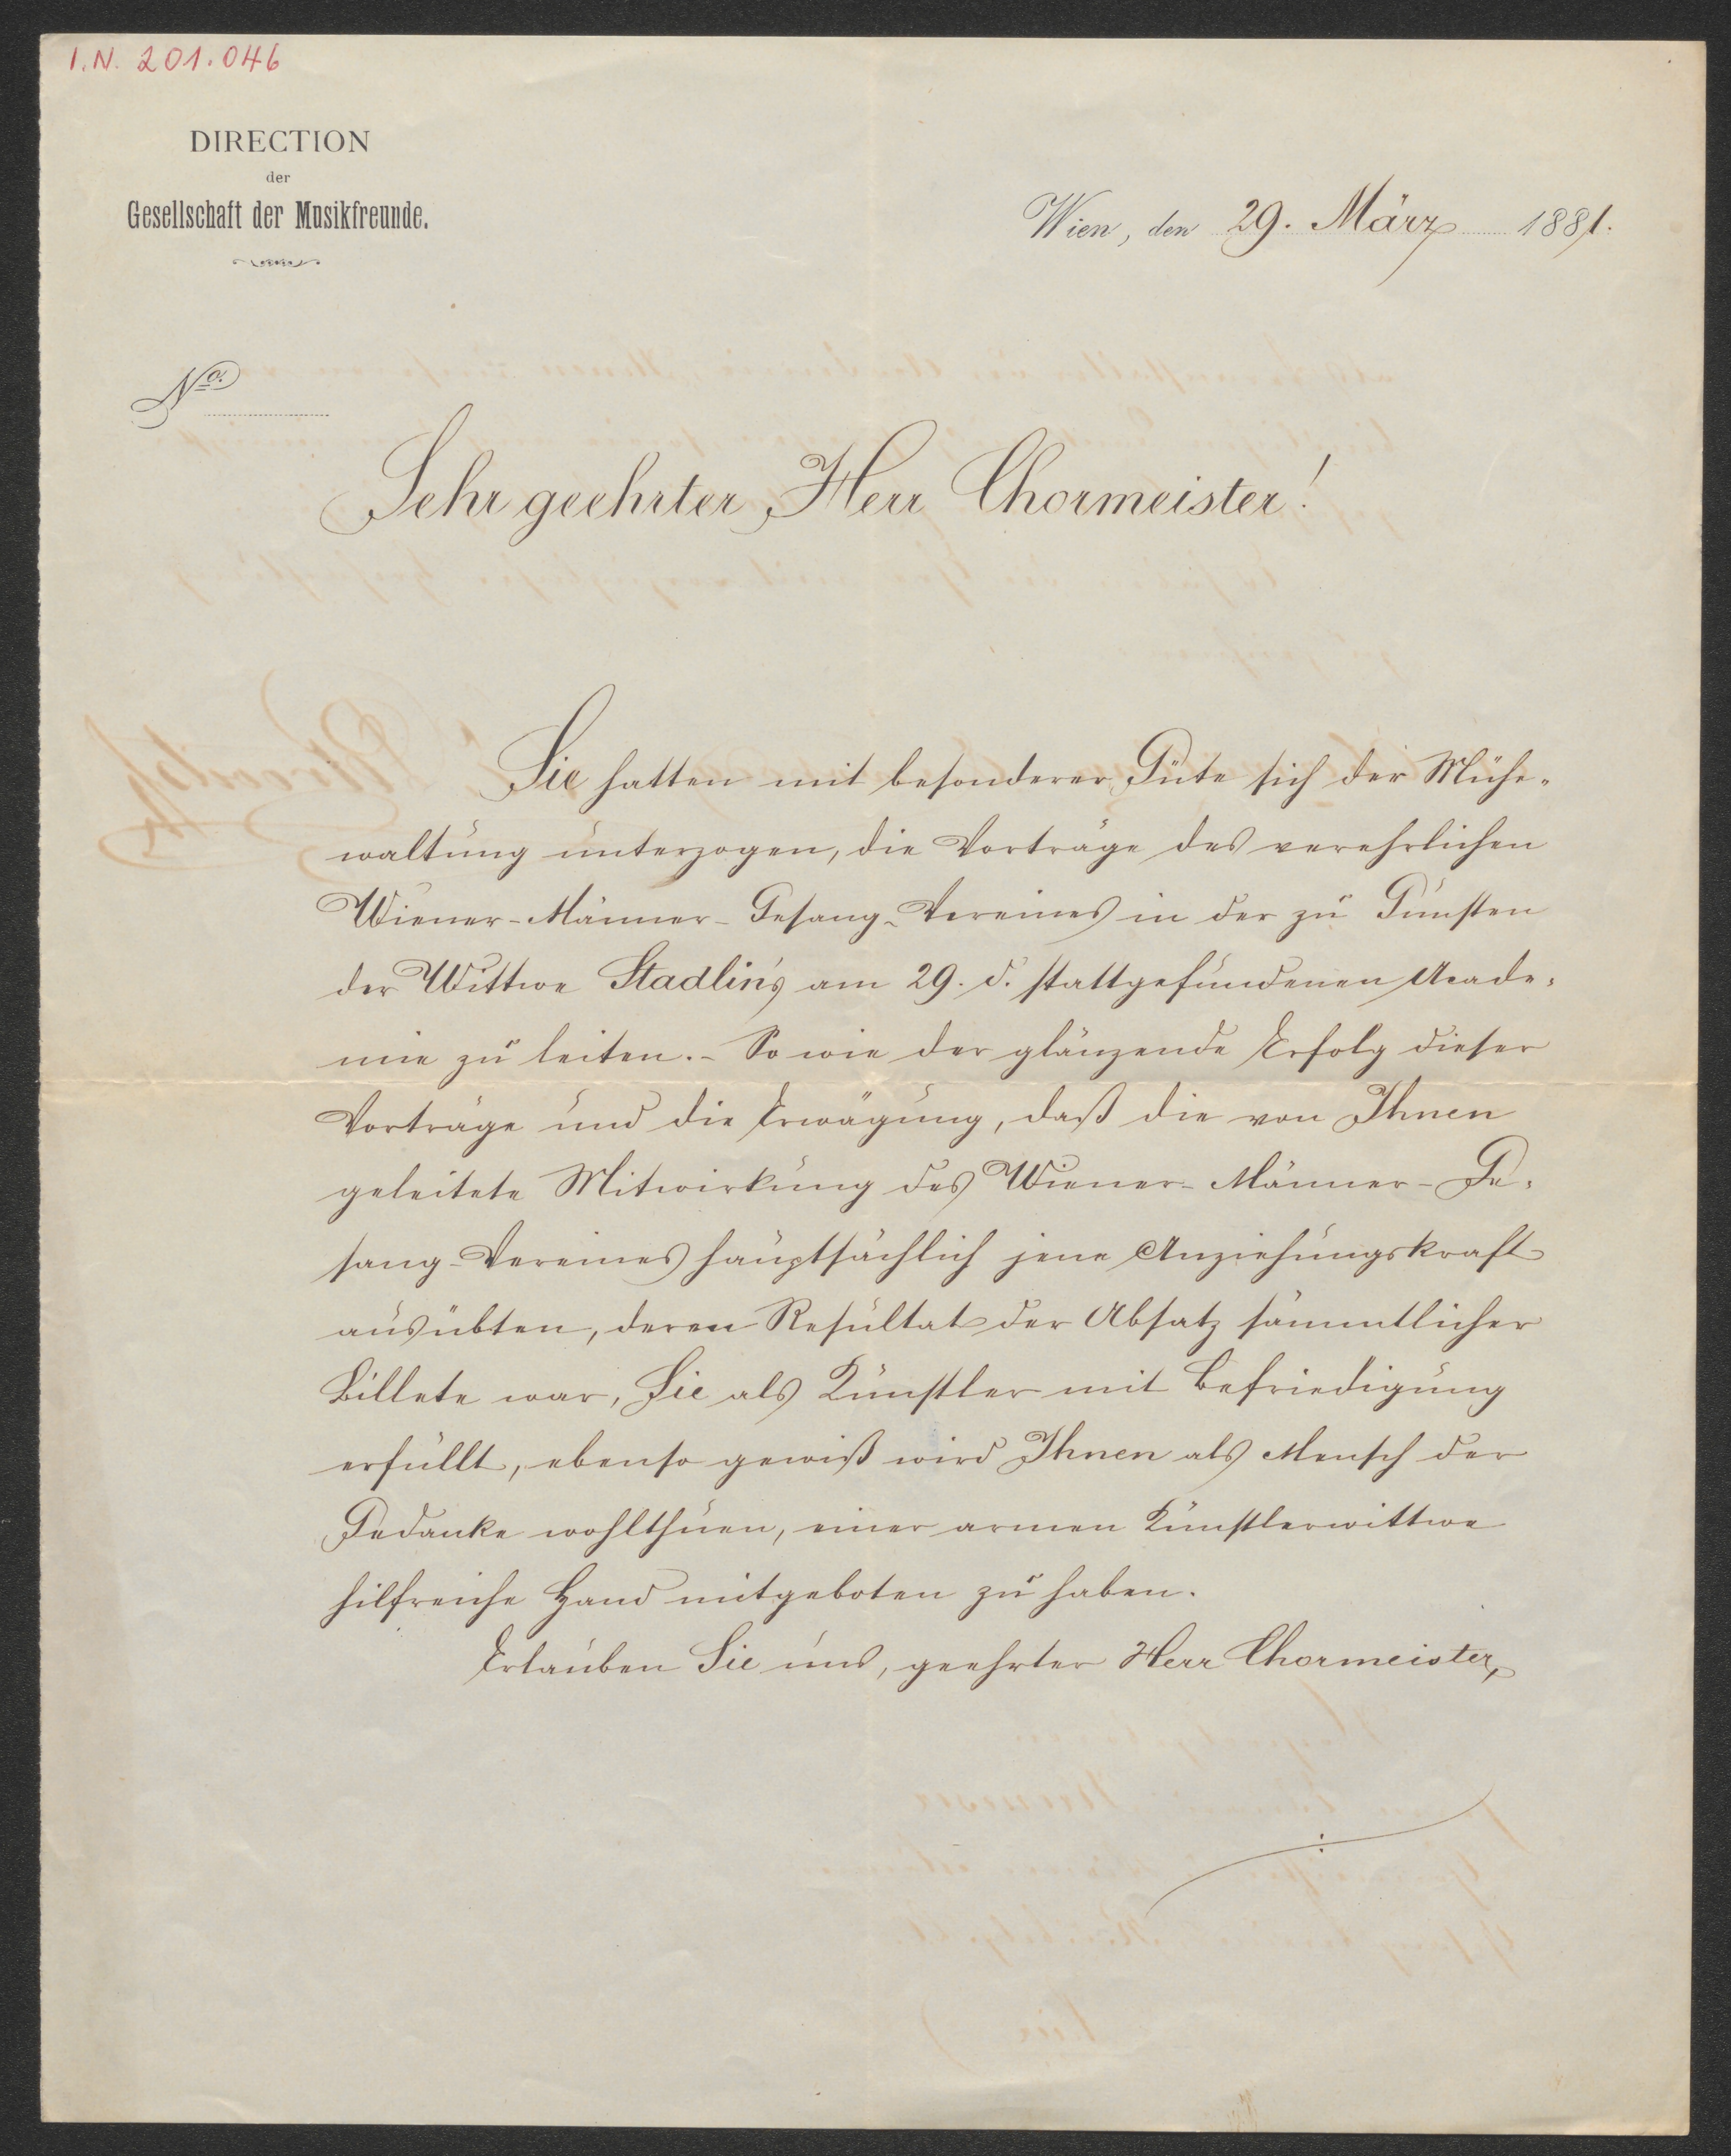 I.N. 201.046
DIRECTION
der
Gesellschaft der Musikfreunde.
Wien, den 29. März 1881.
No.
Sehr geehrter Herr Chormeister!
Sie hatten mit besonderer Güte sich der Mühe-
waltung unterzogen, die Vorträge des verehrlichen
Wiener-Männer-Gesang-Vereines in der zu Gunsten
der Wittwe Stadlin's am 29. d. stattgefundenen Acade-
mie zu leiten.- So wie der glänzende Erfolg dieser
Vorträge und die Erwägung, daß die von Ihnen
geleitete Mitwirkung des Wiener-Männer-Ge-
sang-Vereines hauptsächlich jene Anziehungskraft
ausübten, deren Resultat der Absatz sämmtlicher
Billete war, Sie als Künstler mit Befriedigung
erfüllt, ebenso gewiß wird Ihnen als Mensch der
Gedanke wohlthuen, einer armen Künstlerwittwe
hilfreiche Hand mitgeboten zu haben.
Erlauben Sie uns, geehrter Herr Chormeister,